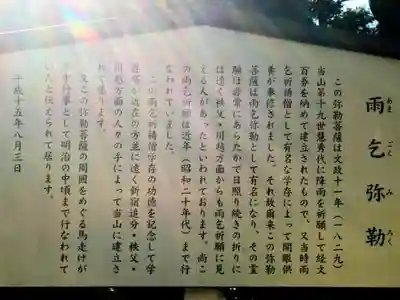 雨乞弥勒
あま ご み ろく
この弥勒菩薩は文政十一年(一八二九)
当山第十九世慧秀代に降雨を祈願して経文
百巻を納めて建立されたもので、又当時雨
乞祈禱僧として有名な学存によって開眼供
養が奉修されました。それ故爾来この弥勒
菩薩は雨乞弥勒として有名になり、その霊
験は非常にあらたかで日照り続きの折りに
は遠く秩父・川越方面からも雨乞祈願に見
える人があったといわれております。尚こ
の雨乞祈願は近年(昭和二十年代)まで行
なわれていました。
この雨乞祈禱僧学存の功徳を記念して学
存塔が近在の方並に遠く新宿追分・秩父・
川越方面の人々の手によって当山に建立さ
れて居ります。
又この弥勒菩薩の周囲をめぐる馬走けが
行事として明治の中頃まで行なわれて
いたと伝えられて居ります。
平成十五年八月三日